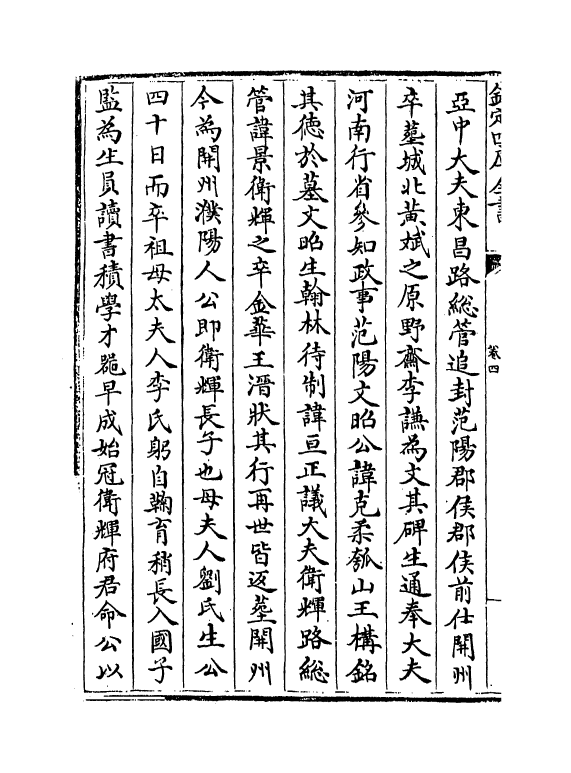 欽定四庫全書
卷四
亞中大夫東昌路總管追封范陽郡侯郡侯前仕開州
卒塟城北黃斌之原野齋李謙為文其碑生通奉大夫
河南行省參知政事范陽文昭公諱克柔瓠山王構銘
其徳於墓文昭生翰林待制諱亘正議大夫衛輝路總
管諱景衛輝之卒金華王溍狀其行再世皆返塟開州
今為開州濮陽人公即衛輝長子也母夫人劉氏生公
四十日而卒祖母太夫人李氏躬自鞠育稍長入國子
監為生員讀書積學才䂓早成始冠衛輝府君命公以